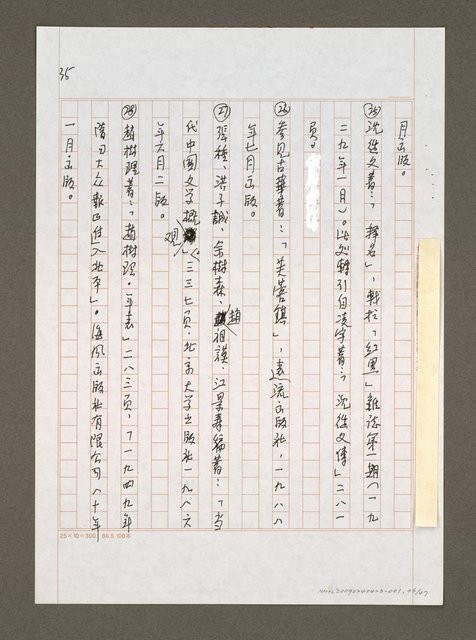 35
月出版。
㉕沈從文著：「釋名」，載於「紅黑」雜誌第一期（一九
二九年一月）。此處轉引自凌宇著：「沈從文傳」二八一
頁。
㉖參見古華著：「芙蓉鎮」，遠流出版社，一九八八
年七月出版。
㉗張鐘、洪子誠、佘樹森、趙祖謨、江景壽編著：「當
代中國文學概觀」三三七頁，北京大學出版社一九八六
年六月二版。
㉘趙樹理著：「趙樹理·年表」二八三頁，「一九四九年
隨日大众報由進入北平」。海風出版社有限公司八十年
一月出版。
25×10=300 86.5.100本